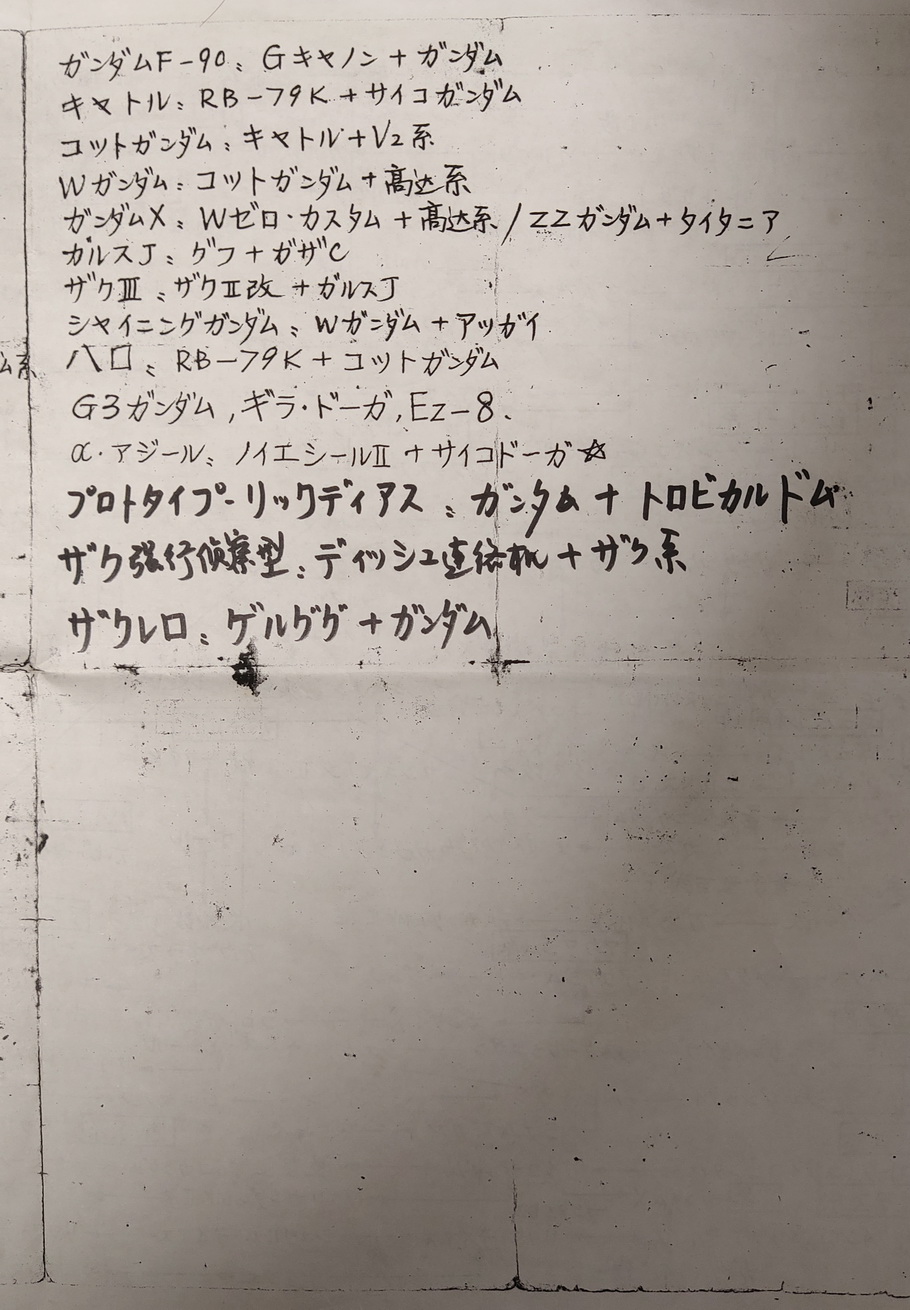 ガンダムF-90: Gキャノン+ガンダム
キャトル: RB-79K+サイコガンダム
コットガンダム: キャトル+V2系
Wガンダム: コットガンダム+高达系
ガンダムX: Wゼロ・カスタム+高达系/ZZガンダム+タイタニア
ガルスJ: グフ+ガザC
ザクⅢ: ザクⅡ改+ガルスJ
シャイニングガンダム: Wガンダム+アッガイ
ム系
ハロ: RB-79K+コットガンダム
G3ガンダム,ギラ・ドーガ,Ez-8.
α・アジール: ノイエシールⅡ+サイコドーガ☆
プロトタイプ-リックディアス: ガンダム+トロピカルドム
ザク强行偵察型: ディッシュ連絡机+ザク系
ザクレロ: ゲルググ+ガンダム